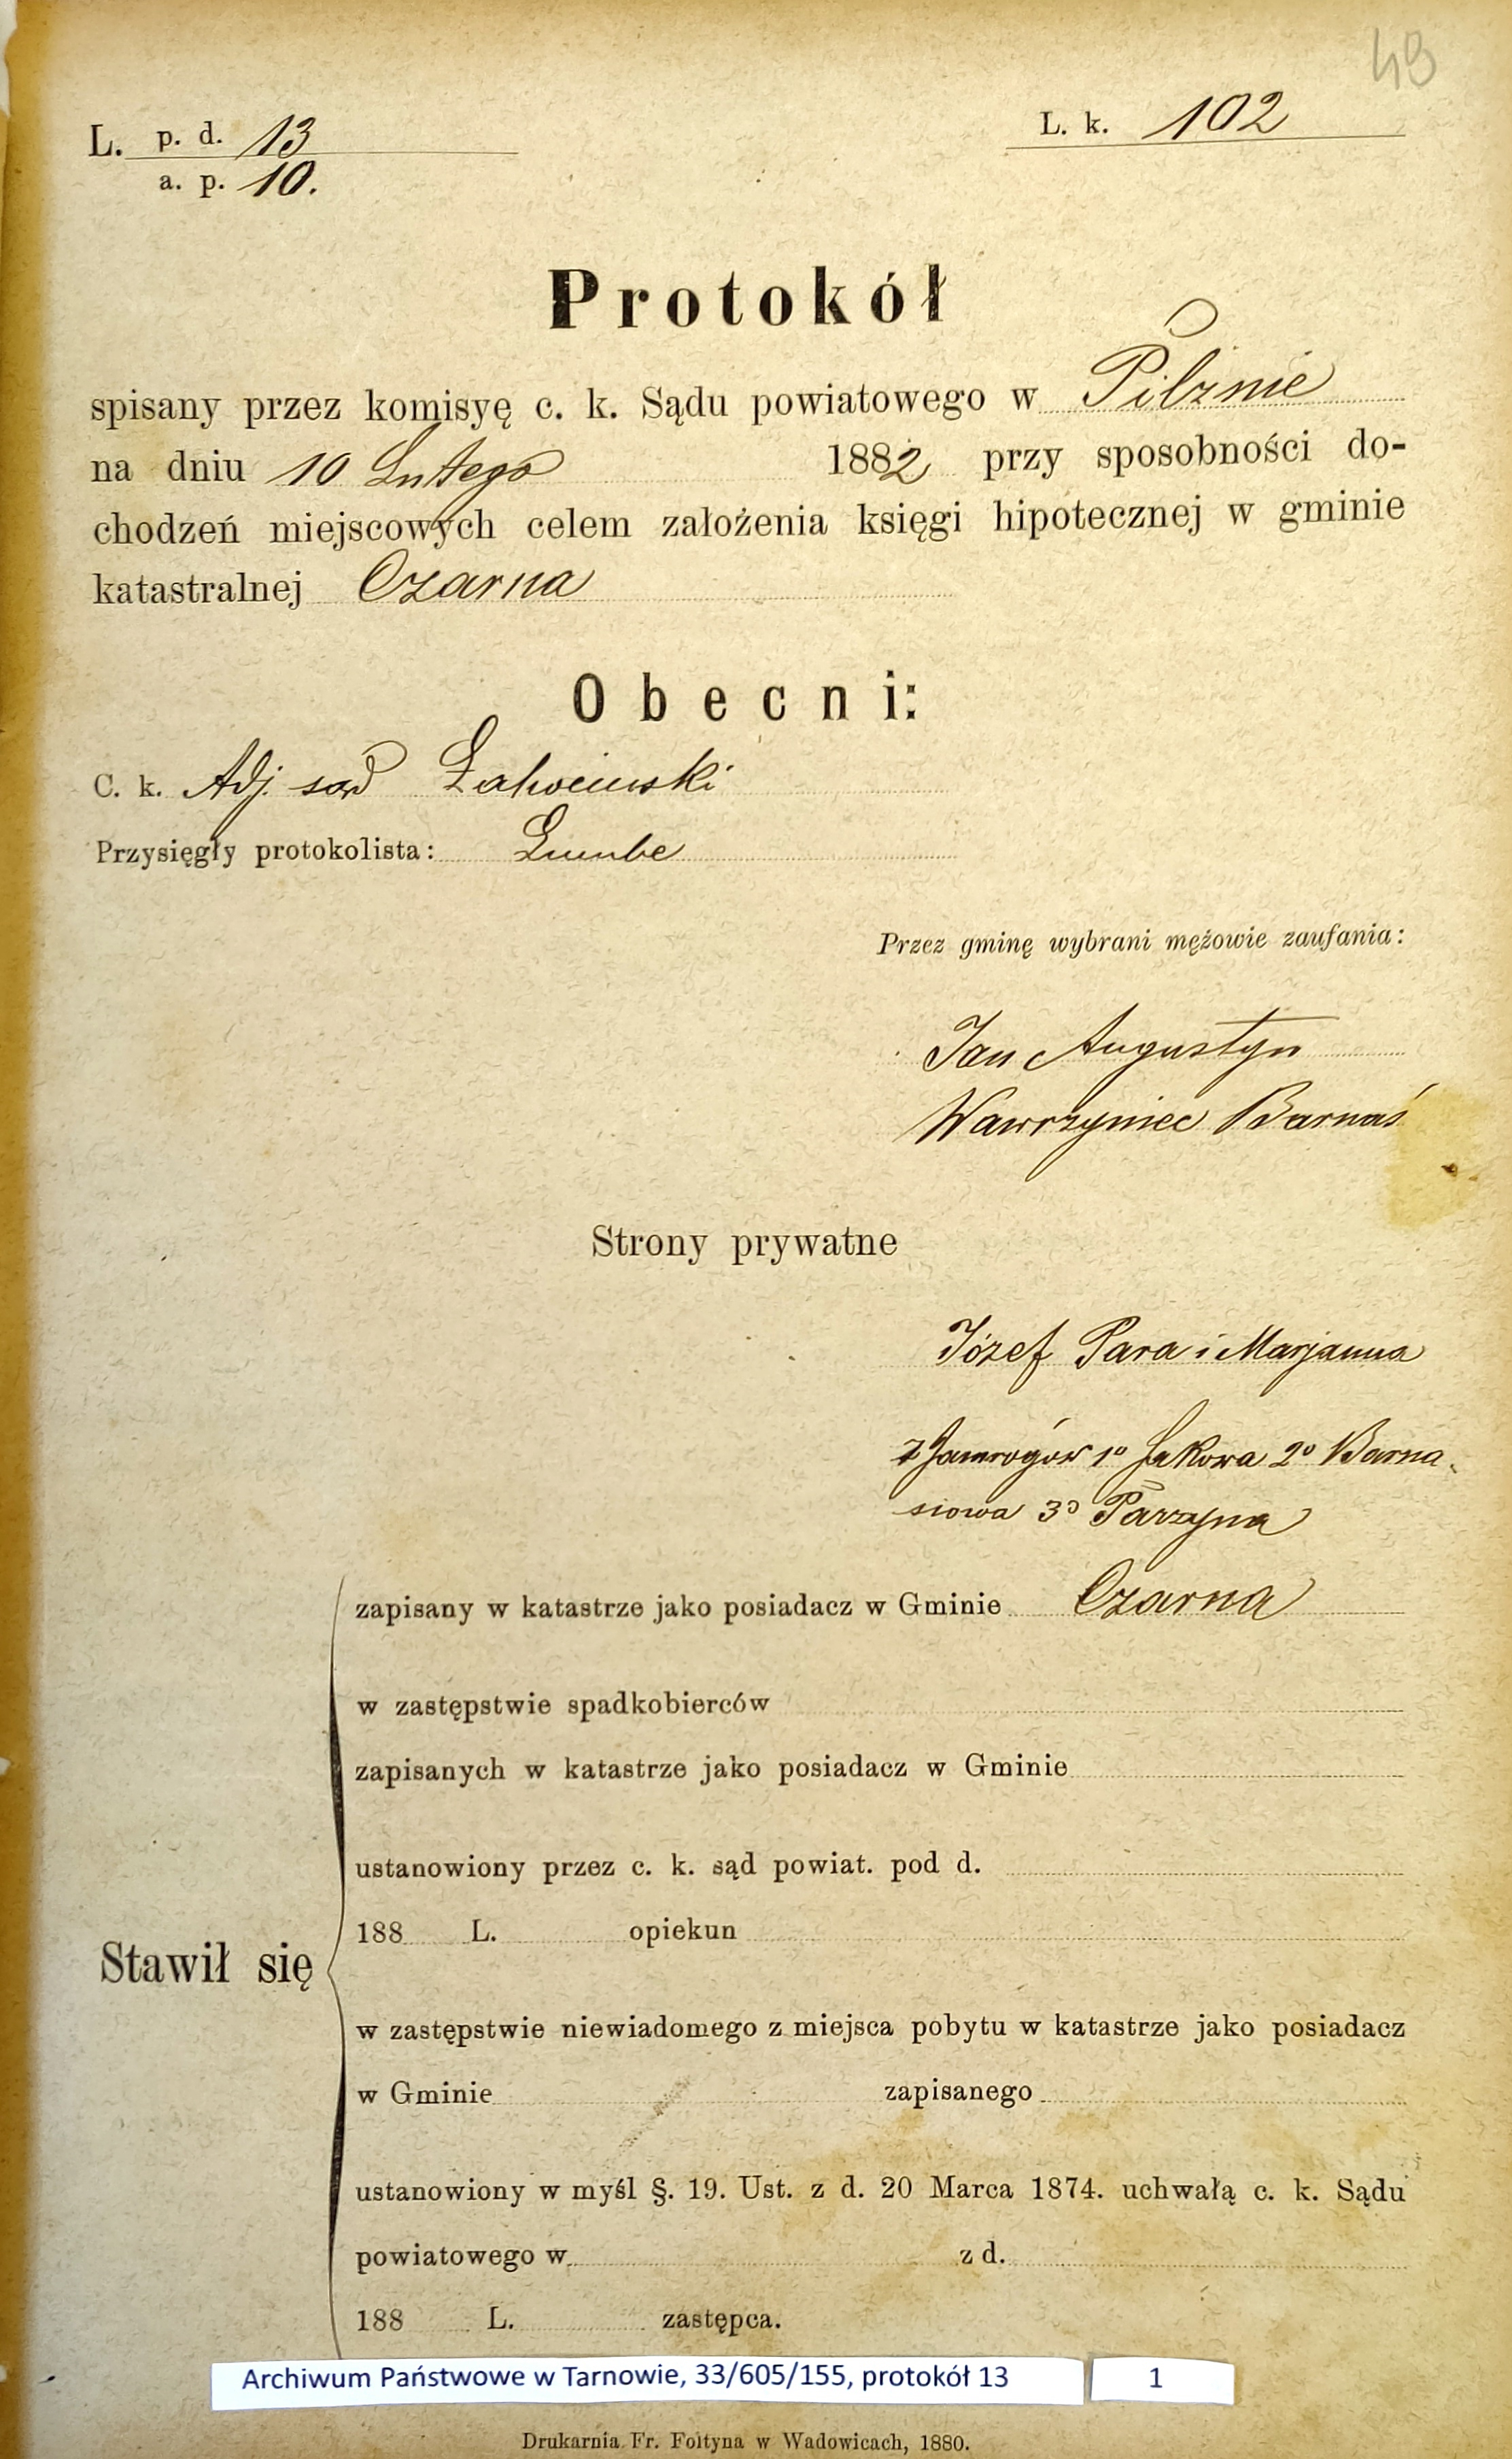 49
L. p. d. 13
a. p. 10.
L. k. 102
Protokół
spisany przez komisyę c. k. Sądu powiatowego w Pilznie
na dniu 10 Lutego 1882 przy sposobności do-
chodzeń miejscowych celem założenia księgi hipotecznej w gminie
katastralnej Czarna
Obecni:
C. k. Adj. sąd
Przysięgły protokolista:
Przez gminę wybrani mężowie zaufania:
Jan Augustyn
Wawrzyniec Barnaś
Strony prywatne
Józef Para i Marjanna
z Jamrogów 1º Łąkowa 2º Barna-
siowa 3º Parzyna
zapisany w katastrze jako posiadacz w Gminie Czarna
w zastępstwie spadkobierców
zapisanych w katastrze jako posiadacz w Gminie
ustanowiony przez c. k. sąd powiat. pod d.
188 L. opiekun
Stawił się
w zastępstwie niewiadomego z miejsca pobytu w katastrze jako posiadacz
w Gminie zapisanego
ustanowiony w myśl §. 19. Ust. z d. 20 Marca 1874. uchwałą c. k. Sądu
powiatowego w z d.
188 L. zastępca.
Archiwum Państwowe w Tarnowie, 33/605/155, protokół 13 1
Drukarnia Fr. Foltyna w Wadowicach, 1880.